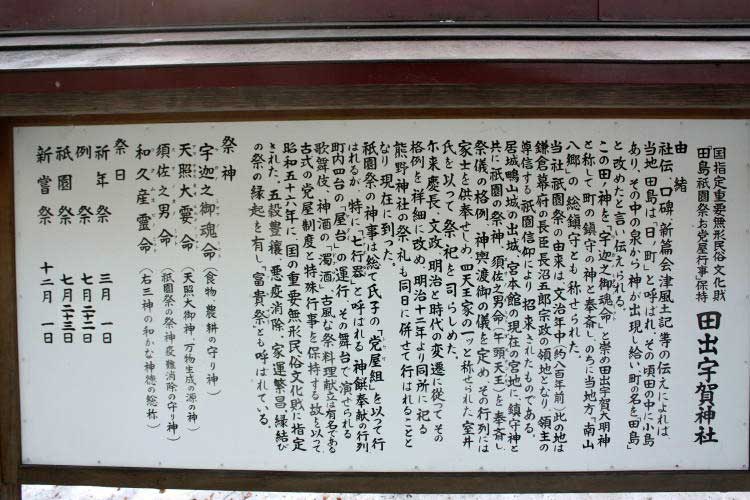 国指定重要無形民俗文化財
田島祇園祭「お党屋行事」保持
田出宇賀神社
由緒
社伝、口碑「新篇会津風土記」等の伝えによれば
当地田島は「日ノ町」と呼ばれ、その頃田の中に小島
あり、その中の泉から神が出現し給い、町の名を「田島」
と改めたと言い伝えられる。
この田ノ神を「宇迦之御魂命」と崇め田出宇賀大明神
と称して町の鎮守の神と奉斎し、のちに当地方「南山
八郷」の総鎮守とも称せられた。
当社祇園祭の由来は、文治年中(約八百年前)此の地は
鎌倉幕府の長臣長沼五郎宗政の領地となり領主の
尊信する祇園信仰により招来されたものである。
居城鴫山城の出城、宮本館の現在の宮地に、鎮守神と
共に祇園の祭神、須佐之男命(牛頭天王)を奉斎し、
祭儀の格例、神輿渡御の儀を定め、その行列には
家士を供奉せしめ、四天王家の一ッと称せられた室井
氏を以って祭祀を司らしめた。
尓来慶長、文政、明治と時代の変遷に従ってその
格例を祥細に改め、明治十二年より同所に祀る
熊野神社の祭礼も同日に併せて行はれることと
なり現在に到った。
祇園祭の神事は総て氏子の「党屋組」を以って行
はれるが、特に「七行器」と呼ばれる神餅奉献の行列
町内四台の「屋台」の運行、その舞台で演ぜられる
歌舞伎、神酒の「濁酒」古風な祭料理献立は有名である
古式の党屋制度と特殊行事を保持する故を以って
昭和五十六年に国の重要無形民俗文化財に指定
された。五穀豊穣、悪疫消除、家運繁昌、縁結び
の祭の縁起を有し、富貴祭とも呼ばれている。
祭神
宇迦之御魂命(食物・農耕の守り神)
天照大霎命(天照大御神、万物生成の源の神)
須佐之男命(祇園祭の祭神疫難消除の守り神)
和久産霊命(右三神の和かな神徳の総称)
祭日
祈年祭 三月一日
例祭 七月二十二日
祇園祭 七月二十三日
新嘗祭 十二月一日